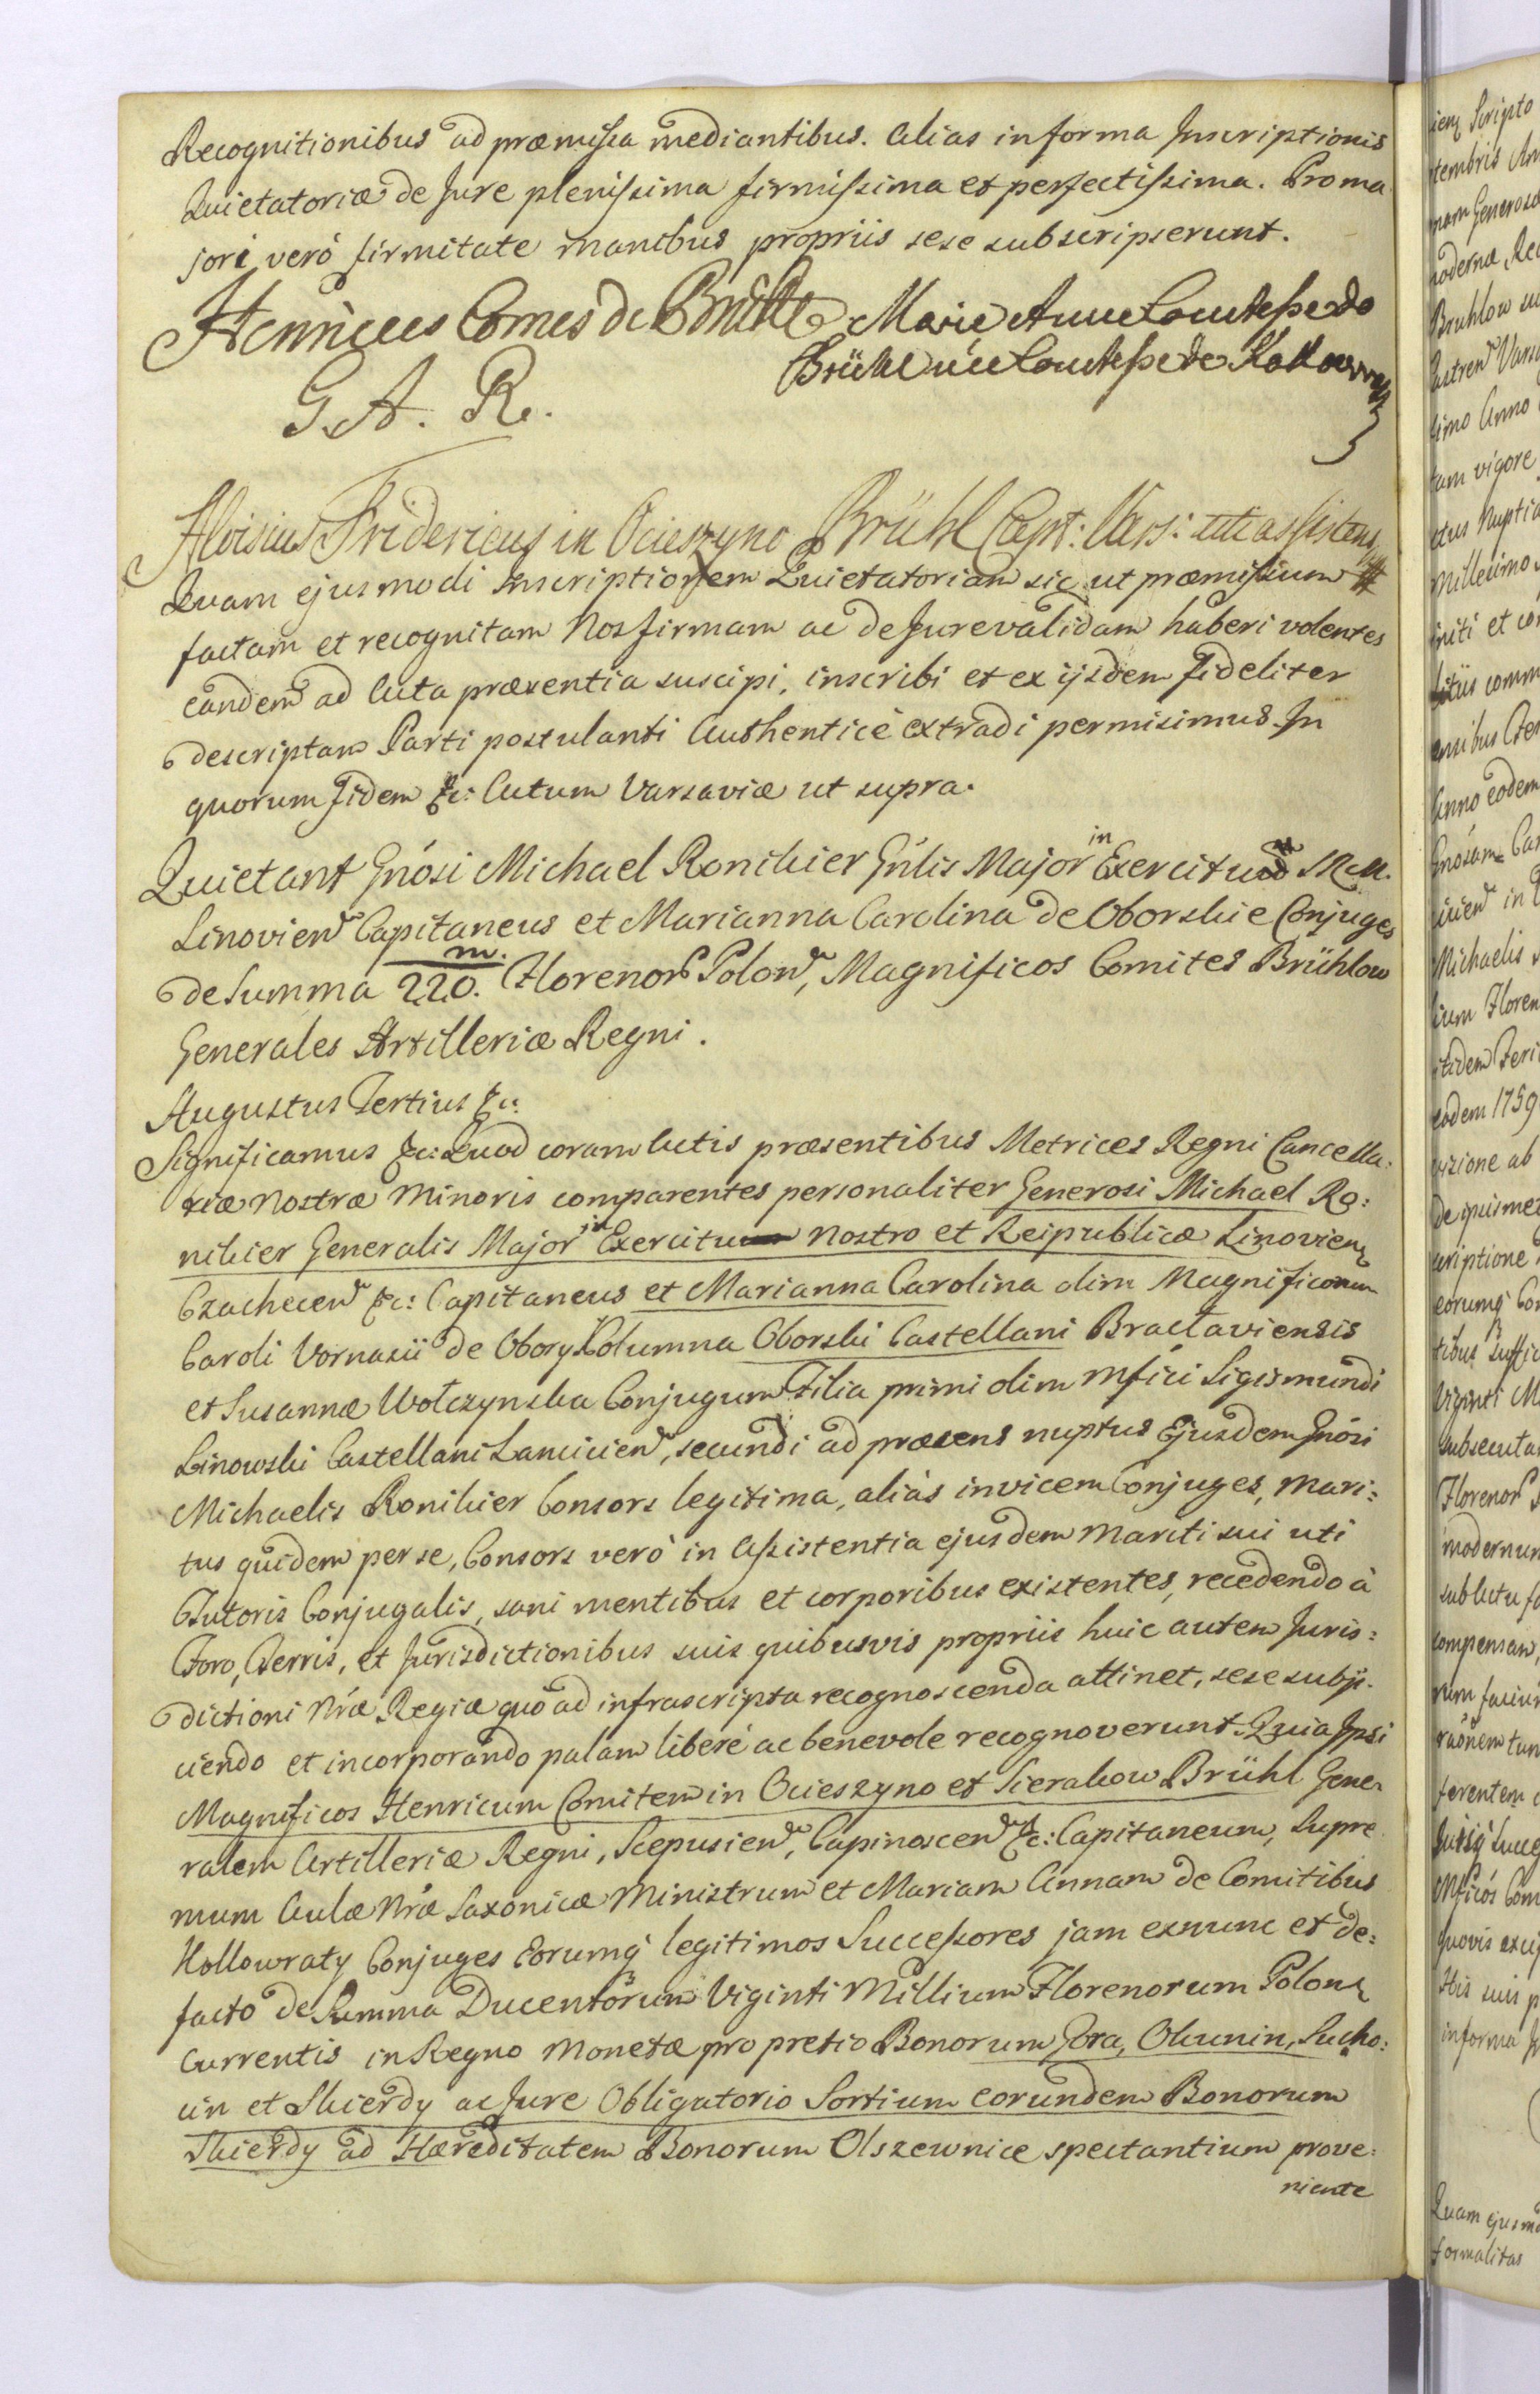 Recognitionibus ad præmissa mediantibus. Alias in forma Inscriptionis
Quietatoriæ de Jure plenissima firmissima et perfectissima. Pro ma
jori verò firmitate manibus propriis sese subscripserunt.
Henricus Comes de Brühl Marie Anne Comtesse de
Brühl née Comtesse de Kollowrath
G. A. R.
Aloisius Fridericus in Ocieszyno Brühl Capt: Vars: uti assistens
Quam ejusmodi Inscriptionem Quietatoriam sic ut præmissum
factam et recognitam Nos firmam ac de Jure validam haberi volentes
eandem ad Acta præsentia suscipi, inscribi et ex ijsdem fideliter
descriptam Parti postulanti Authenticè extradi permisimus. In
quorum fidem &c: Actum Varsaviæ ut supra.
Quietant Gnósi Michael Ronikier Gnlis Major in Exercitu M.
Linovien Capitaneus et Marianna Carolina de Oborskie Conjuges
de Summa 220. m. Florenor Polon, Magnificos Comites Brühlow
Generales Artilleriæ Regni.
Augustus Tertius &c:
Significamus &c: Quod coram Actis præsentibus Metrices Regni Cancella:
riæ Nostræ Minoris comparentes personaliter Generosi Michael Ro:
nikier Generalis Major in Exercitu nostro et Reipublicæ Linovien
Czachecen &c: Capitaneus et Marianna Carolina olim Magnificorum
Caroli Vornasii de Obory Columna Oborski Castellani Braclaviensis
et Susannæ Wołczynska Conjugum Filia primi olim Mfici Sigismundi
Linowski Castellani Lancicien, secundi ad præsens nuptus Ejusdem Gnósi
Michaelis Ronikier Consors legitima, aliàs invicem Conjuges, Mari:
tus quidem per se, Consors verò in Assistentia ejusdem Mariti sui uti
Tutoris Conjugalis, sani mentibus et corporibus existentes, recedendo à
Foro, Terris, et Jurisdictionibus suis quibusvis propriis huic autem Juris:
dictioni Nræ Regiæ quo ad infrascripta recognoscenda attinet, sese subji-
ciendo et incorporando palam liberè ac benevole recognoverunt. Quia Ipsi
Magnificos Henricum Comitem in Ocieszyno et Sierakow Brühl Gene
ralem Artilleriæ Regni, Scepusien, Capinoscen &c: Capitaneum, Supre
mum Aulæ Nræ Saxonicæ Ministrum et Mariam Annam de Comitibus
Kollowraty Conjuges Eorumq legitimos Successores jam exnunc et de:
facto de Summa Ducentorum Viginti Millium Florenorum Polon
Currentis in Regno Monetæ pro pretio Bonorum Gora, Okunin, Sucho:
cin et Skierdy ac Jure Obligatorio Sortium eorundem Bonorum
Skierdy ad Hæreditatem Bonorum Olszewnice spectantium prove:
niente